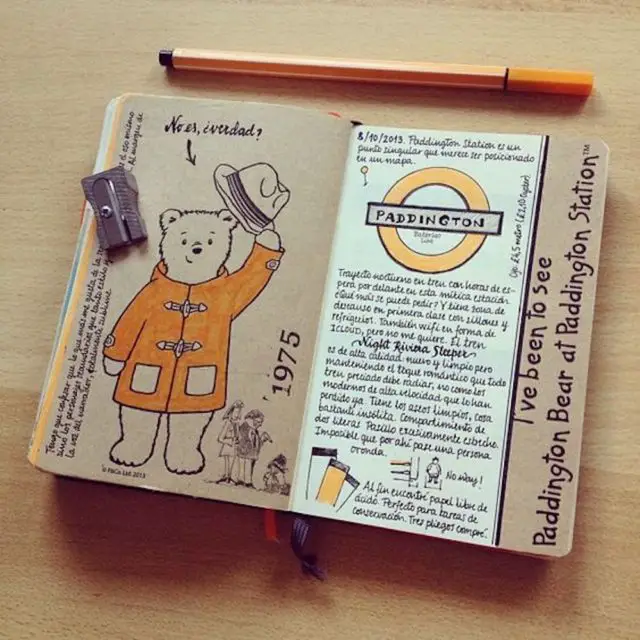 No es, ¿verdad?
'1975
© P&Co. Ltd 2013
8/10/2013. Paddington Station es un
punto singular que merece ser posicionado
en un mapa.
PADDINGTON
Bakerloo
Line
Trayecto nocturno en tren con horas de es-
pera por delante en esta mítica estación.
¿Qué más se puede pedir? Y bien zona de
descanso en primera clase con sillones y
refrigerios. También wifi en forma de
ICLOUD, pero no me quiere. El tren
Night Riviera Sleeper
es de alta calidad: nuevo y limpio pero
manteniendo el toque romántico que todo
tren preciado debe radiar, no como los
modernos de alta velocidad que lo han
perdido ya. Tiene los aseos limpios, cosa
bastante insólita. Compartimento de
dos literas. Pasillo excesivamente estrecho.
Imposible que por ahí pase una persona
oronda.
No way!
Al fin encontré papel libre de
ácido. Perfecto para tareas de
conservación. Tres pliegos compré.
I've been to see
Paddington Bear at Paddington Station™